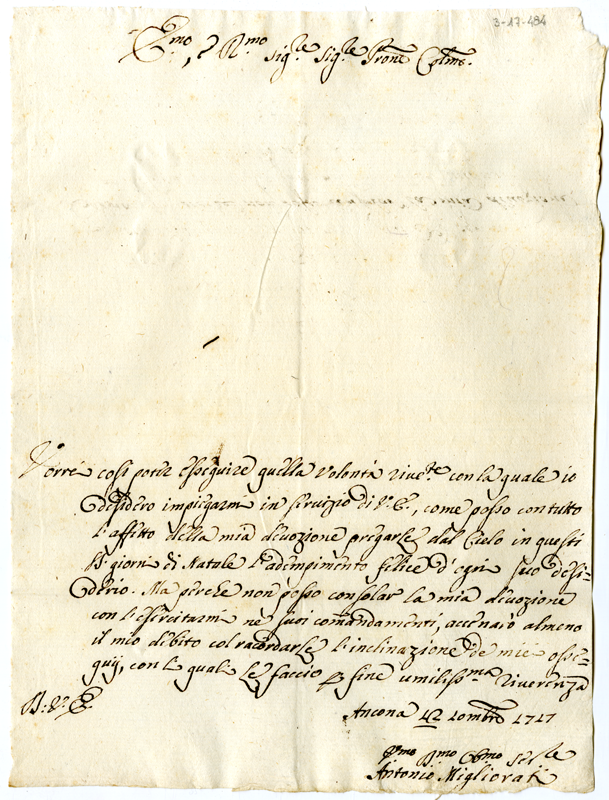 3-17-484
E.mo, e R.mo Sig.re Sig.re Prone Colmo.
Vorrei così poter esseguire quella Volontà rive.te con la quale io
desidero impiegarmi in servizio di V. E., come posso con tutto
l'affetto della mia devozione pregarle dal Cielo in questi
SS. giorni di Natale l'adempimento felice d'ogni suo desi=
derio. Ma perche non posso consolar la mia devozione
con l'esercitarmi ne suoi comandamenti, accenaro almeno
il mio debito col racordarle l'inclinazione de miei osse=
quij, con le quali le faccio per fine umiliss.ma riverenza
D: V. E.
Ancona 12 Xmbre 1717
D.mo Obmo Ser.re
Antonio Migliorati